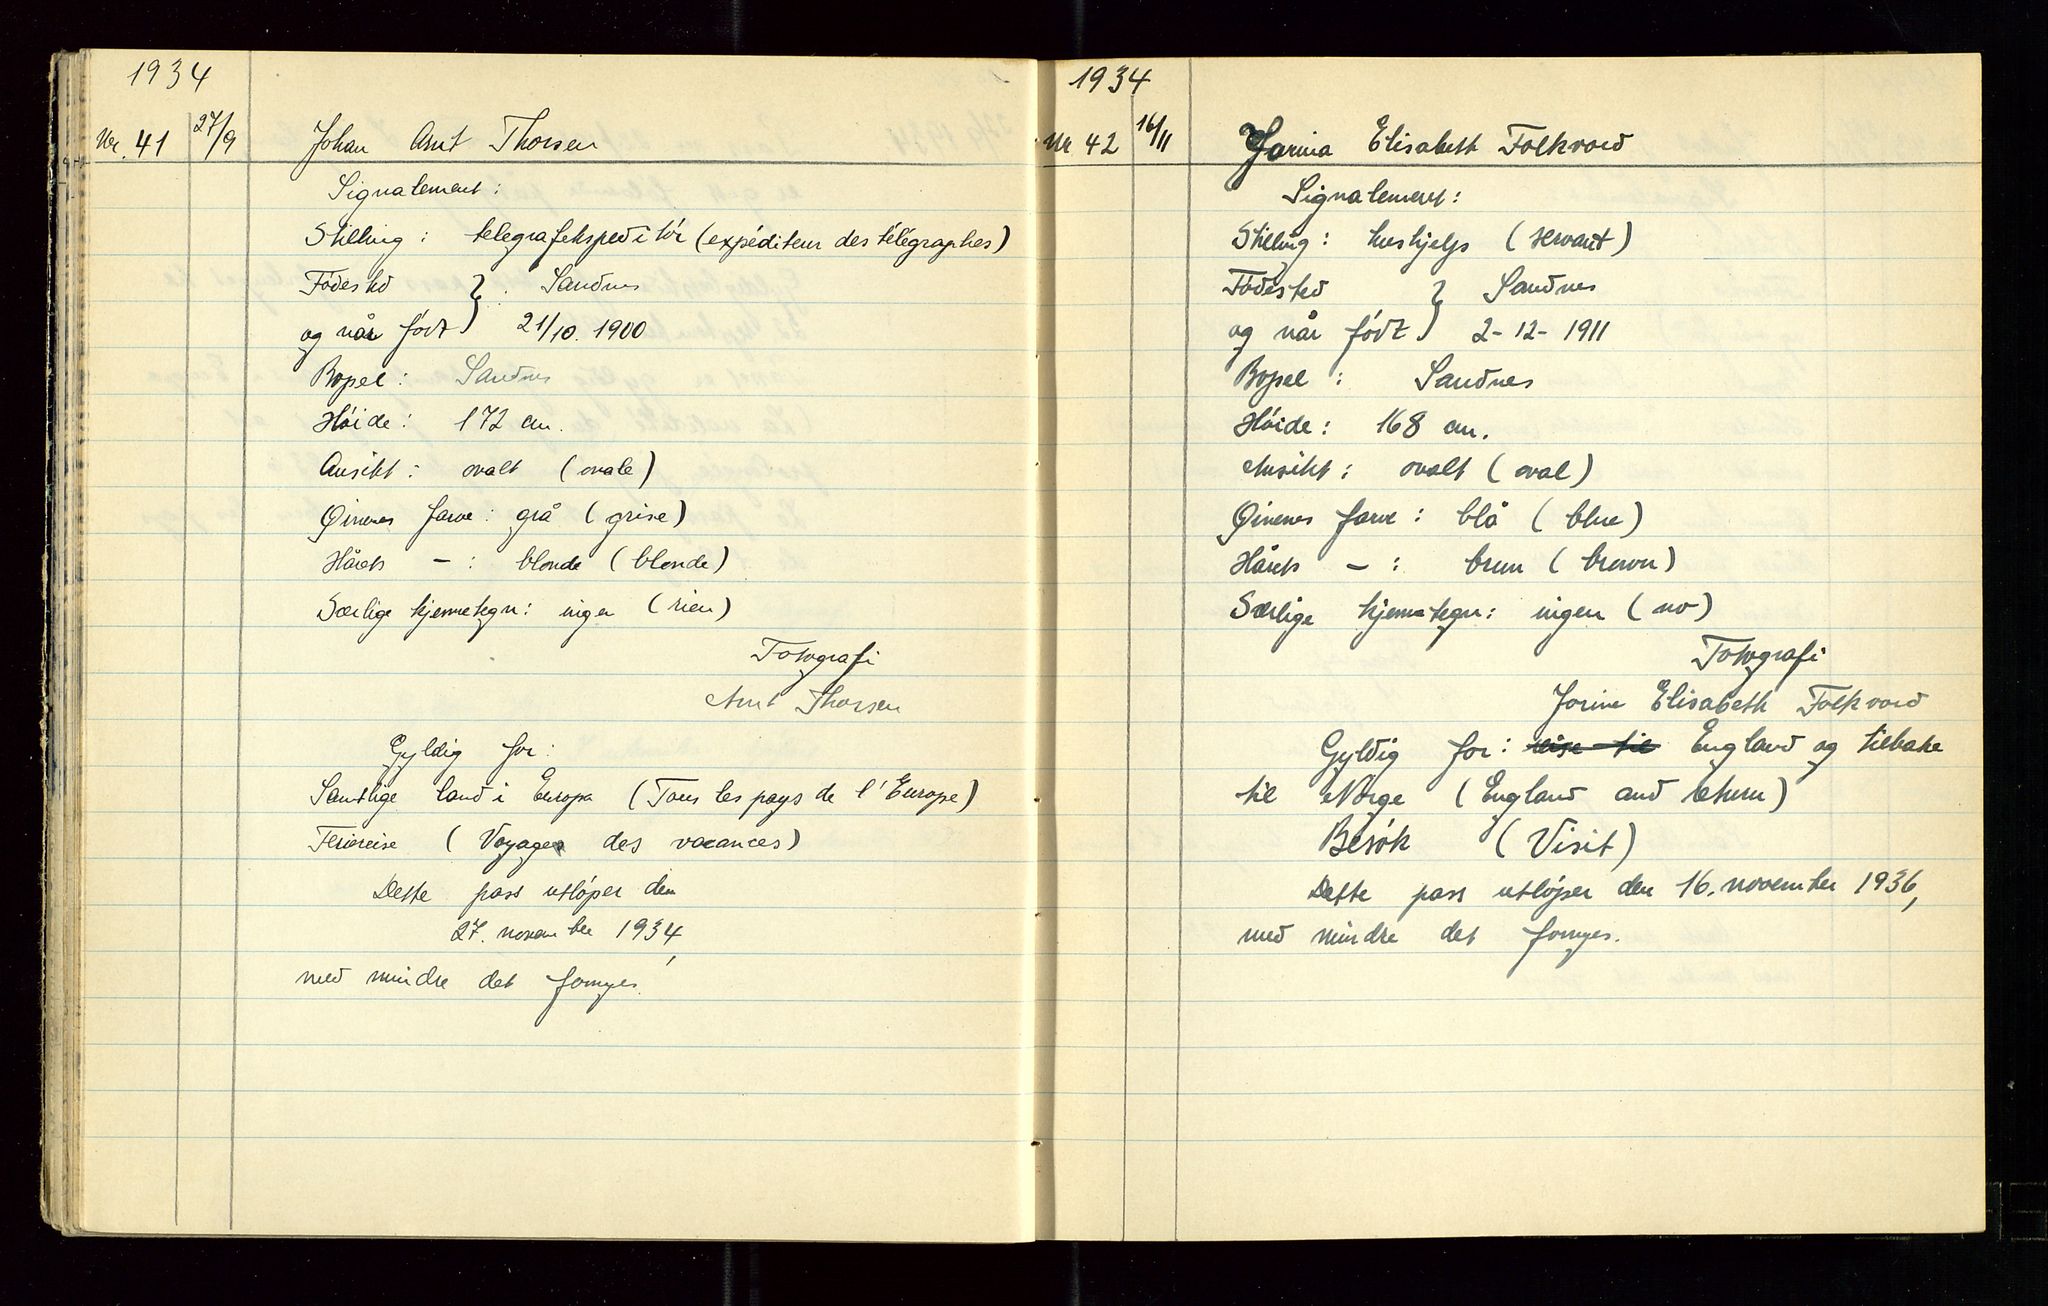 1934
Nr. 41 27/9 Johan Arnt Thorsen
Signalement:
Stilling: telegrafekspeditör (expéditeur des télégraphes)
Födested } Sandnes
og når födt } 21/10. 1900
Bopel: Sandnes
Höide: 172 cm.
Ansikt: ovalt (ovale)
Øinenes farve: grå (grise)
Hårets - : blonde (blonde)
Særlige kjennetegn: ingen (rien)
Fotografi
Arnt Thorsen
Gyldig for:
Samtlige land i Europa (Tous les pays de l'Europe)
Feriereise (Voyages des vacances)
Dette pass utlöper den
27. november 1934,
med mindre det fornyes.
1934
Nr 42 16/11 Jorina Elisabeth Folkvord
Signalement:
Stilling: hushjelp (servant)
Födested } Sandnes
og når födt } 2-12-1911
Bopel: Sandnes
Höide: 168 cm.
Ansikt: ovalt (oval)
Øinenes farve: blå (blue)
Hårets - : brun (brown)
Særlige kjennetegn: ingen (no)
Fotografi
Jorine Elisabeth Folkvord
Gyldig for: reise til England og tilbake
til Norge (England and return)
Besök (Visit)
Dette pass utlöper den 16. november 1936,
med mindre det fornyes.